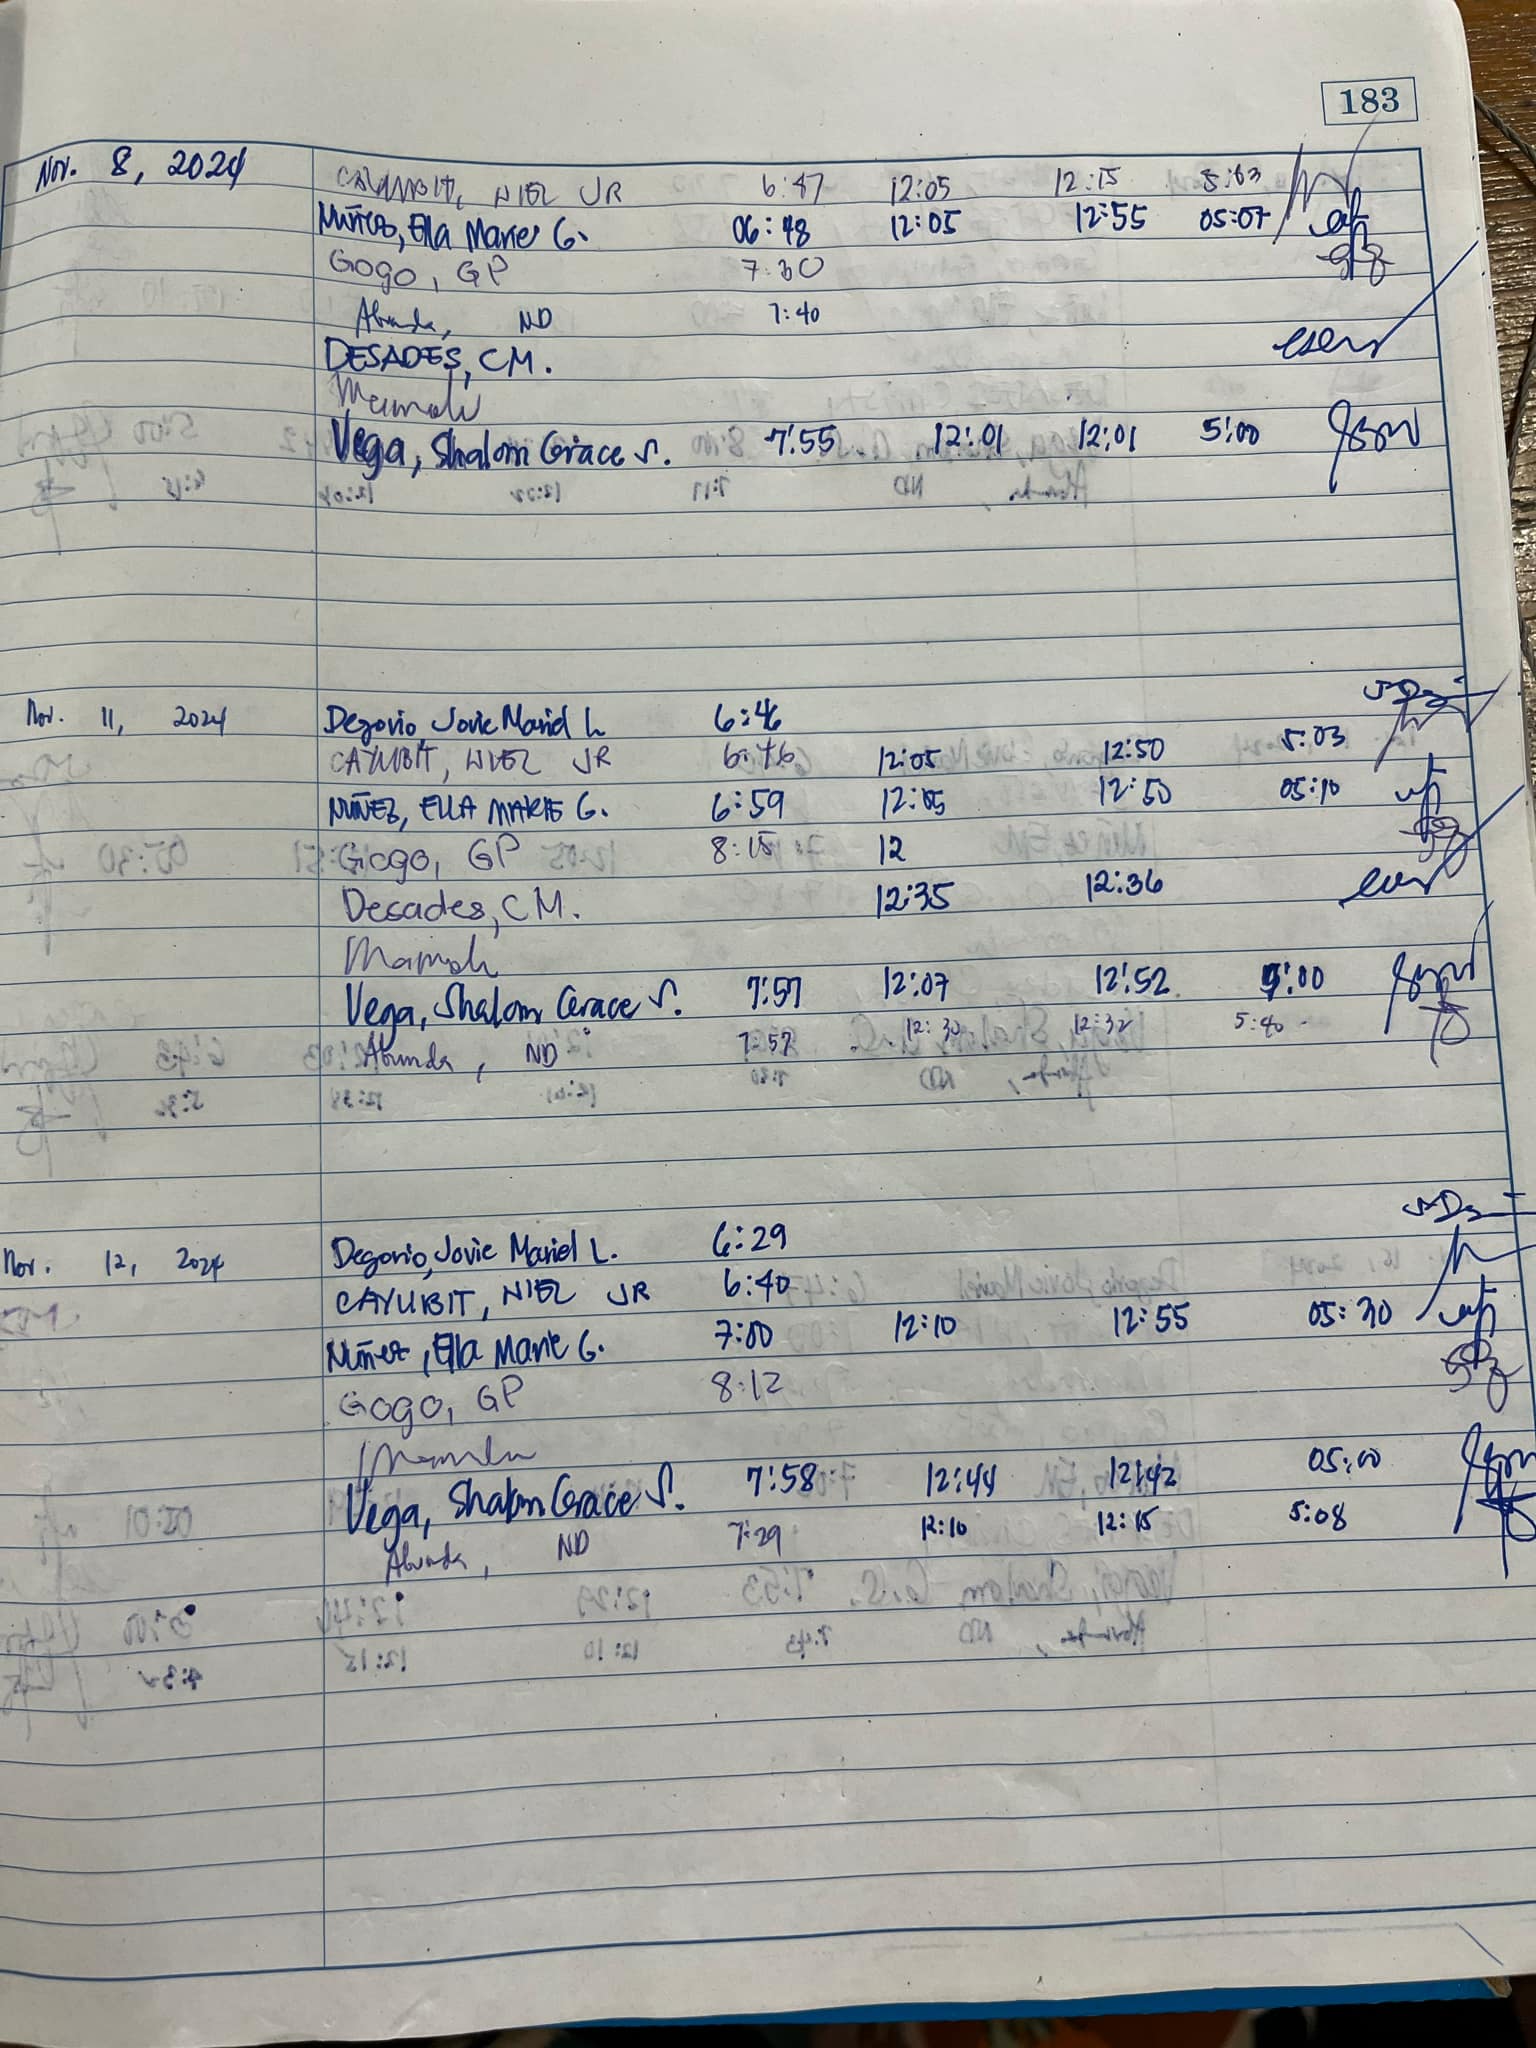 183
Nov. 8, 2024
CAYUBIT, NIEL JR 6:47 12:05 12:15 5:03
Muñez, Ella Marie G. 06:48 12:05 12:55 05:07
Gogo, GP 7:30
Abunda, ND 7:40
DESADES, CM.
Vega, Shalom Grace S. 7:55 12:01 12:01 5:00
Nov. 11, 2024 Degorio, Jovie Mariel L 6:46
CAYUBIT, NIEL JR 6:46 12:05 12:50 5:03
NUÑEZ, ELLA MARIE G. 6:59 12:05 12:50 05:10
Gogo, GP 8:15 12
Desades, CM. 12:35 12:36
Vega, Shalom Grace S. 7:57 12:07 12:52 5:00
Abunda, ND 7:57 12:30 12:32 5:40
Nov. 12, 2024 Degorio, Jovie Mariel L. 6:29
CAYUBIT, NIEL JR 6:40
Nuñez, Ella Marie G. 7:00 12:10 12:55 05:30
Gogo, GP 8:12
Vega, Shalom Grace S. 7:58 12:44 12:42 05:00
Abunda, ND 7:29 12:10 12:15 5:08